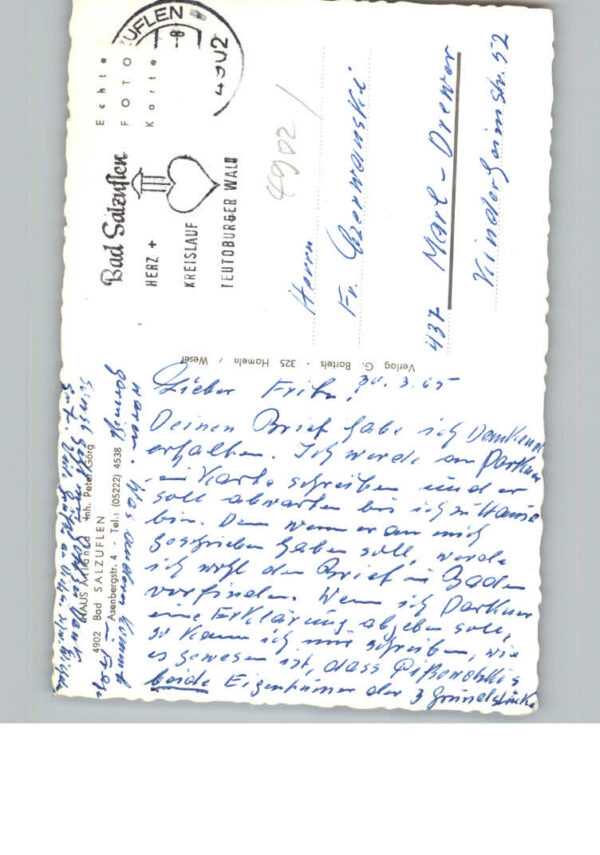 Echte
FOTO
Karte
SALZUFLEN
-8
4902
Bad Salzuflen
HERZ +
KREISLAUF
TEUTOBURGER WALD
4902 /
Herrn
Fr. Czerwanski
437 Marl-Drewer
Kinderheimstr. 52
Verlag G. Bartels · 325 Hameln / Wesel
Lieber Fritz, 30.3.65
Deinen Brief habe ich dankend
erhalten. Ich werde an Partkun
ein Karte schreiben und er
soll abwarten bis ich zu Hause
bin. Denn wenn er an mich
geschrieben haben soll, werde
ich wohl den Brief in Baden
vorfinden. Wenn ich Partkun
eine Erklärung abgeben soll,
so kann ich nur schreiben, wie
es gewesen ist, dass
beide Eigentümer der 3 Grundstücke
waren. Was anderes kommt
garnicht in Frage
Sonst geht mir
gut.
HAUS Inh. Peter Görg
4902 Bad SALZUFLEN
Asenbergstr. 4 - Tel.: (05222) 4538